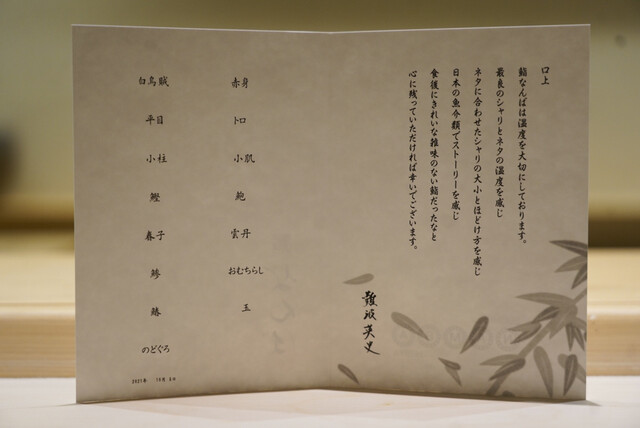 口上
鮨なんばは温度を大切にしております。
最良のシャリとネタの温度を感じ
ネタに合わせたシャリの大小とほどけ方を感じ
日本の魚介類でストーリーを感じ
食後にきれいな雑味のない鮨だったなと
心に残っていただければ幸いでございます。
難波英史
赤身
トロ
小肌
鮑
雲丹
おむちらし
玉
白烏賊
平目
小柱
鰹
春子
鯵
鰆
のどぐろ
2021年 10月